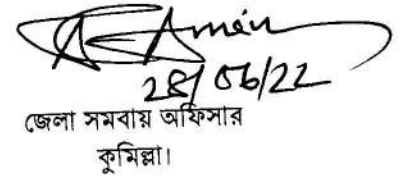 28/06/22
জেলা সমবায় অফিসার
কুমিল্লা।